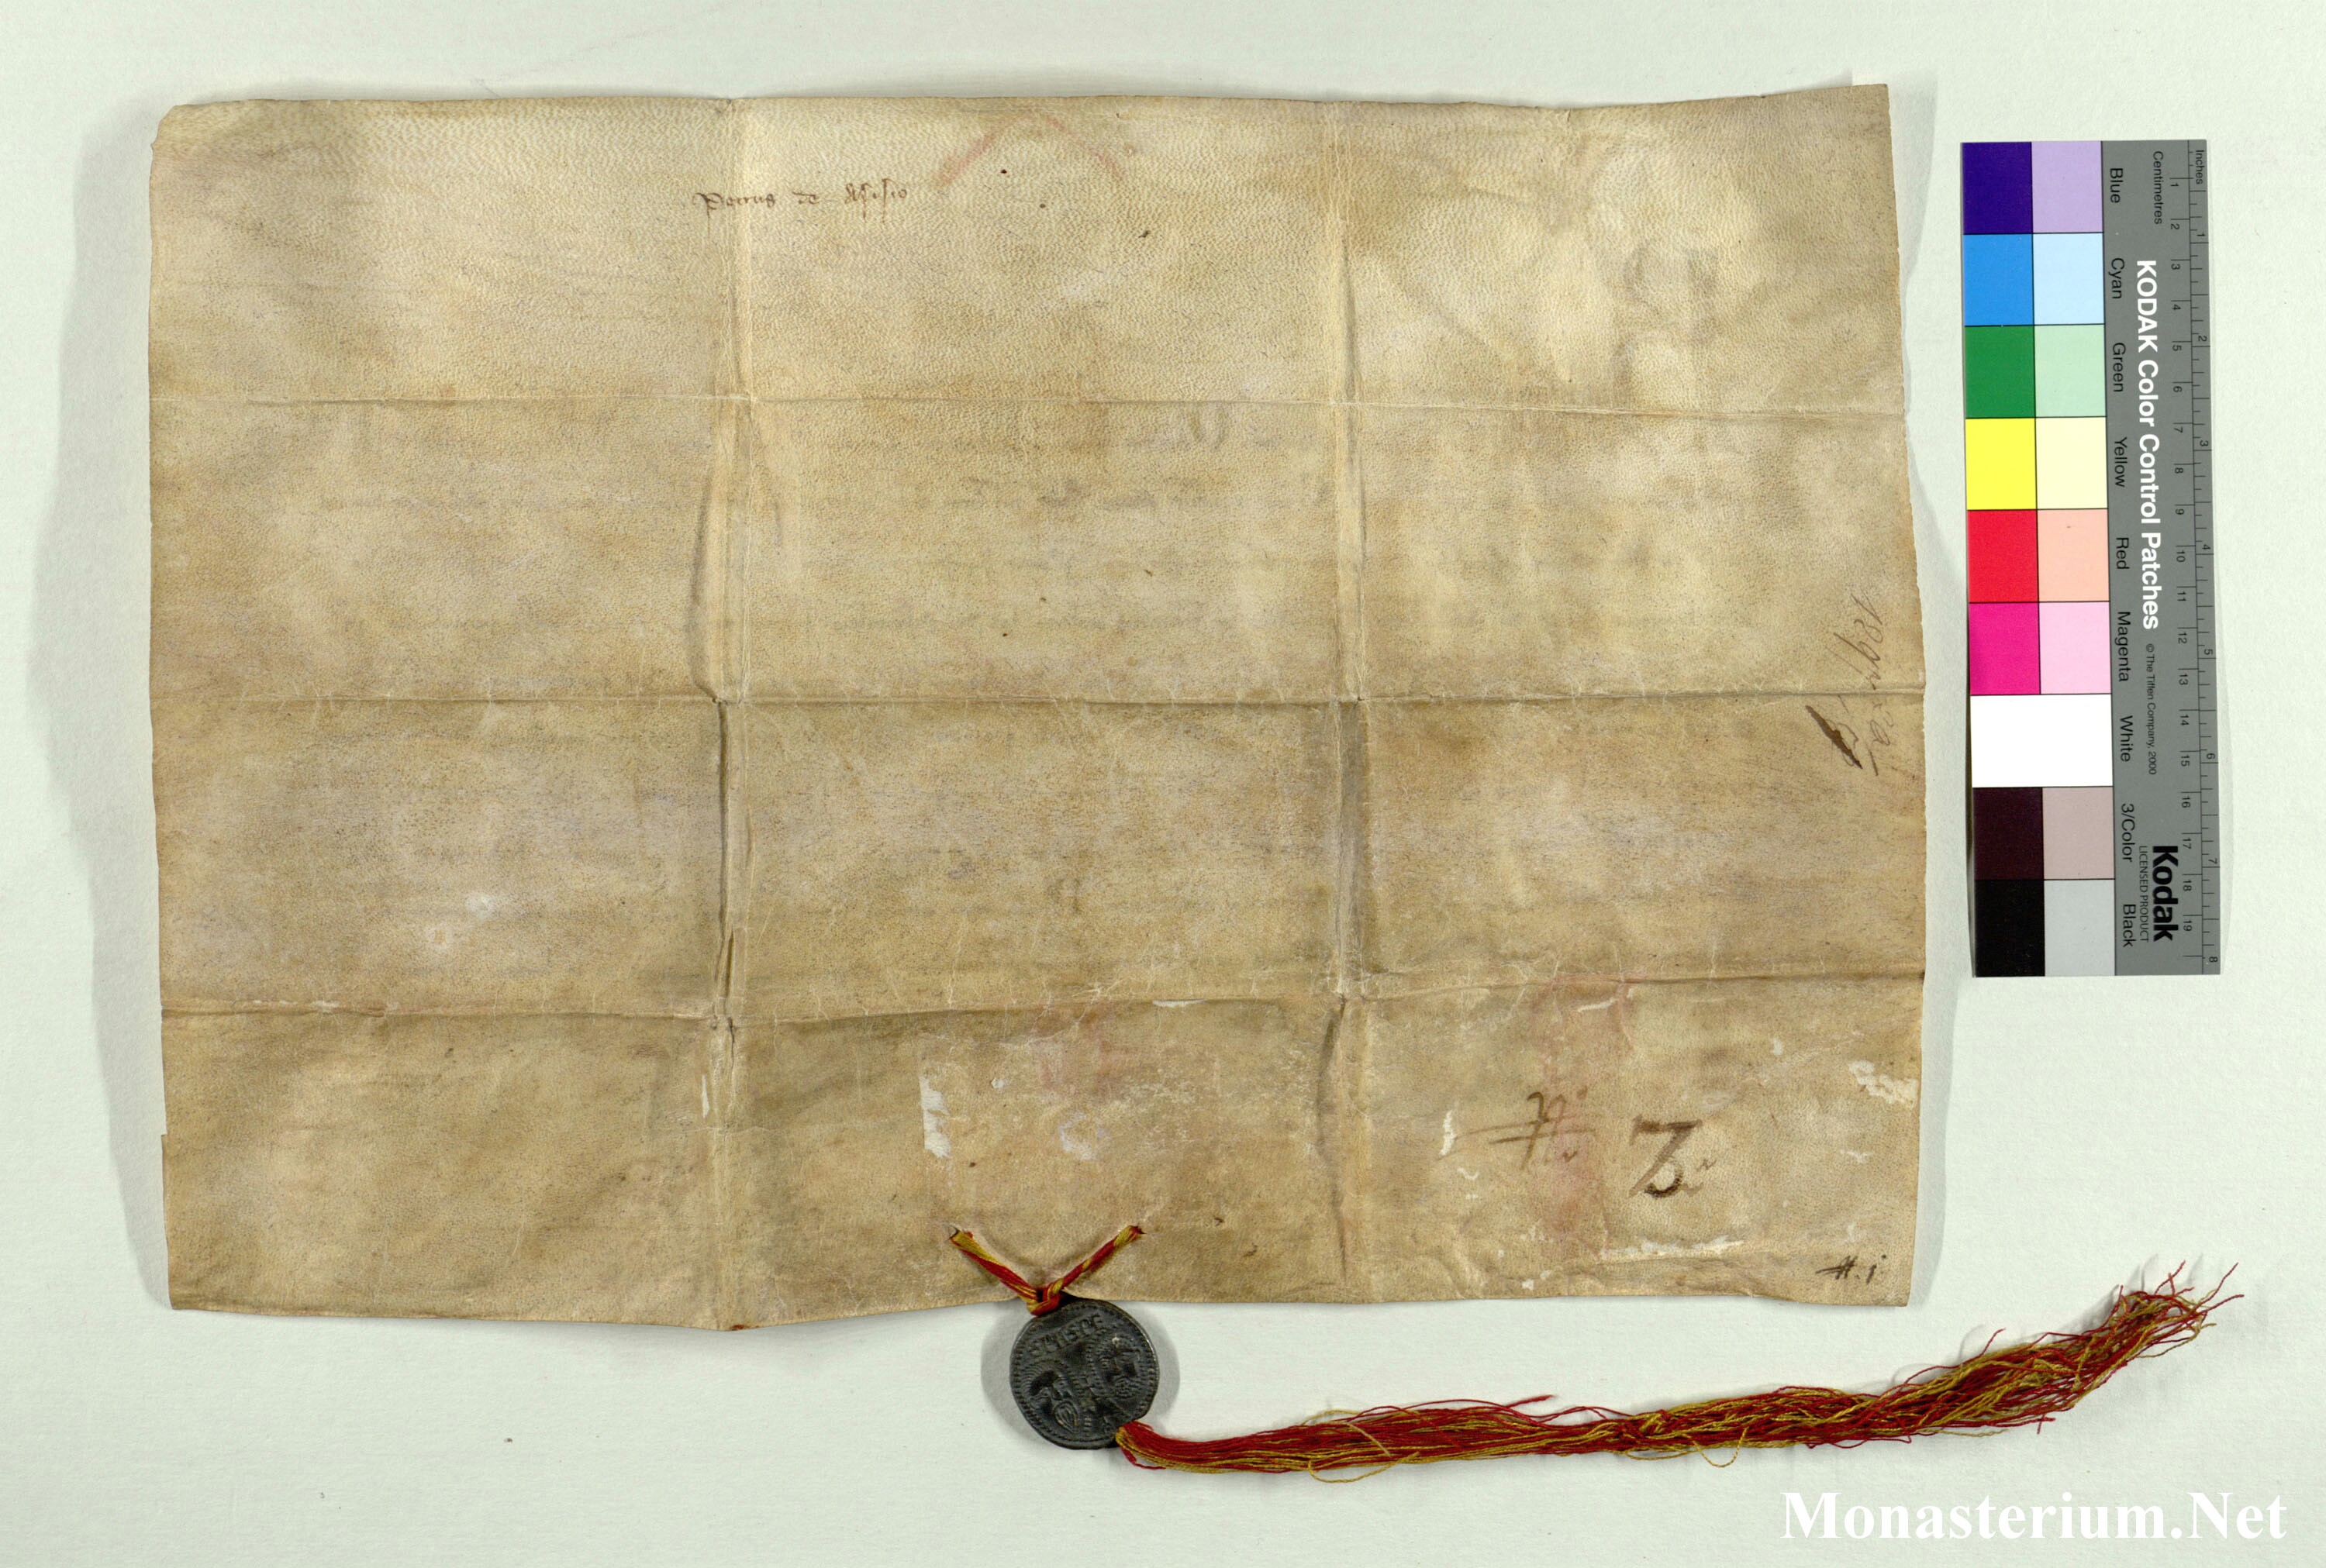 Petrus de Asisio
N.
3.
#. j
SPASPE
Inches
Centimetres
1 2 3 4 5 6 7 8 9 10 11 12 13 14 15 16 17 18 19
1 2 3 4 5 6 7 8
KODAK Color Control Patches © The Tiffen Company, 2000
Kodak
LICENSED PRODUCT
Blue Cyan Green Yellow Red Magenta White 3/Color Black
Monasterium.Net